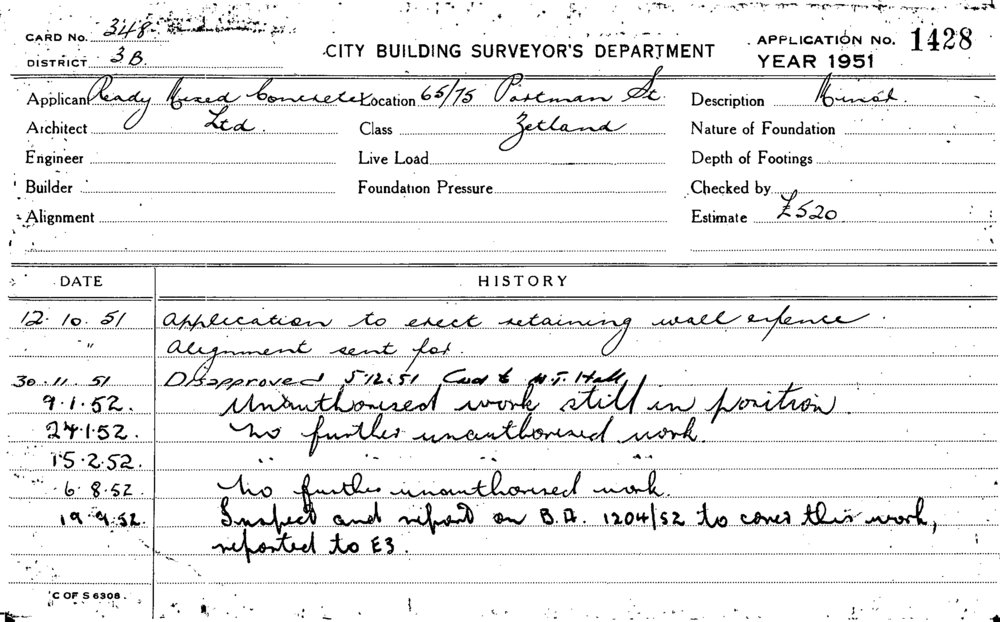 CARD No. 348
DISTRICT 3B
CITY BUILDING SURVEYOR'S DEPARTMENT
APPLICATION No. 1428
YEAR 1951
Applicant Ready Mixed Concrete Location 65/75 Portman St. Description Minor.
Architect Ltd. Class Zetland Nature of Foundation
Engineer Live Load Depth of Footings
Builder Foundation Pressure Checked by
Alignment Estimate £520
DATE HISTORY
12.10.51 Application to erect retaining wall & fence.
" Alignment sent for.
30.11.51 Disapproved 5.12.51 Card to Hall
9.1.52. Unauthorised work still in position.
24.1.52. No further unauthorised work.
15.2.52. " " " "
6.8.52. No further unauthorised work.
19.9.52. Inspect and report on B.A. 1204/52 to cover this work,
reported to E3.
C OF S 6308.